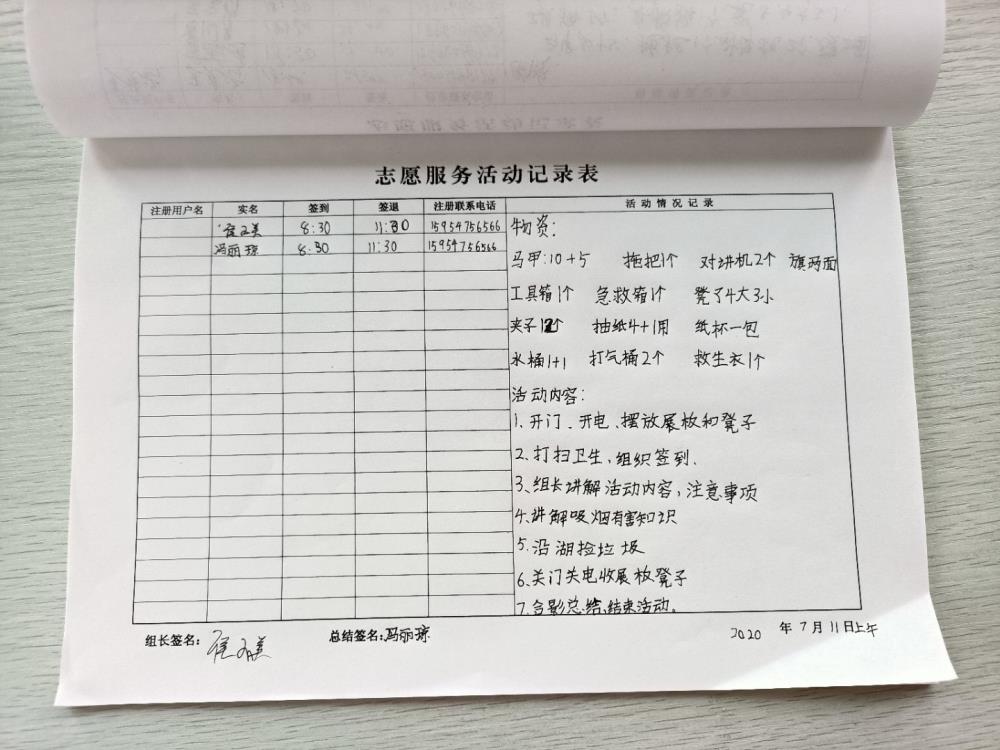 志愿服务活动记录表
注册用户名 实名 签到 签退 注册联系电话 活动情况记录
8:30 11:30 15954756566
冯丽琼 8:30 11:30 15954756566
物资:
马甲:10+5 拖把1个 对讲机2个 旗两面
工具箱1个 急救箱1个 凳子4大3小
夹子12个 抽纸4+1用 纸杯一包
水桶1+1 打气桶2个 救生衣1个
活动内容:
1、开门、开电、摆放展板和凳子
2、打扫卫生,组织签到.
3、组长讲解活动内容,注意事项
4、讲解吸烟有害知识
5、沿湖捡垃圾
6、关门关电收展板凳子
7、合影总结,结束活动。
组长签名: 总结签名:冯丽琼 2020 年 7 月 11 日上午